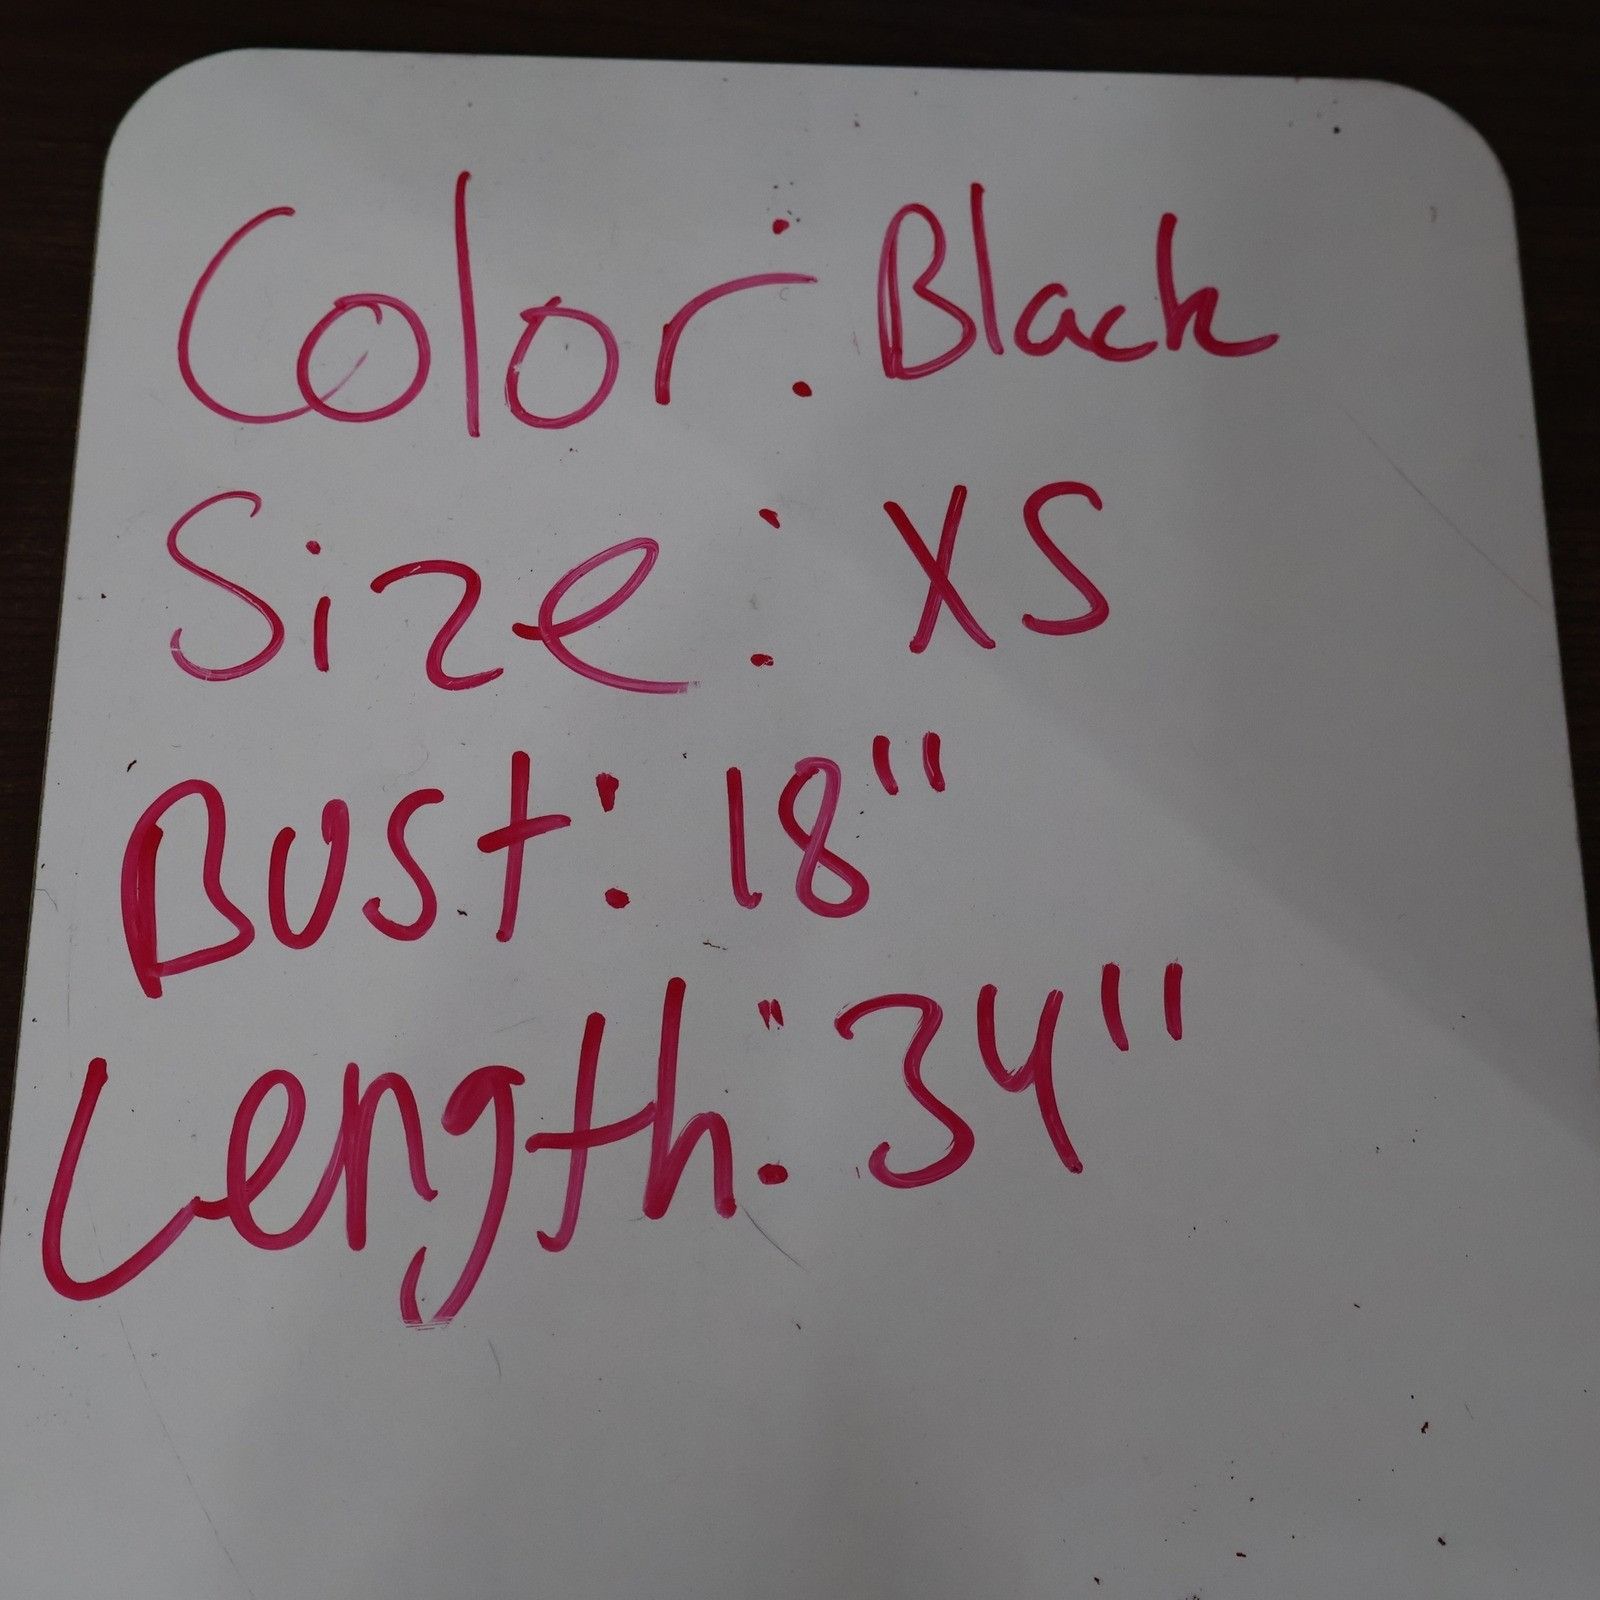 Color: Black
Size: XS
Bust: 18"
Length: 34"